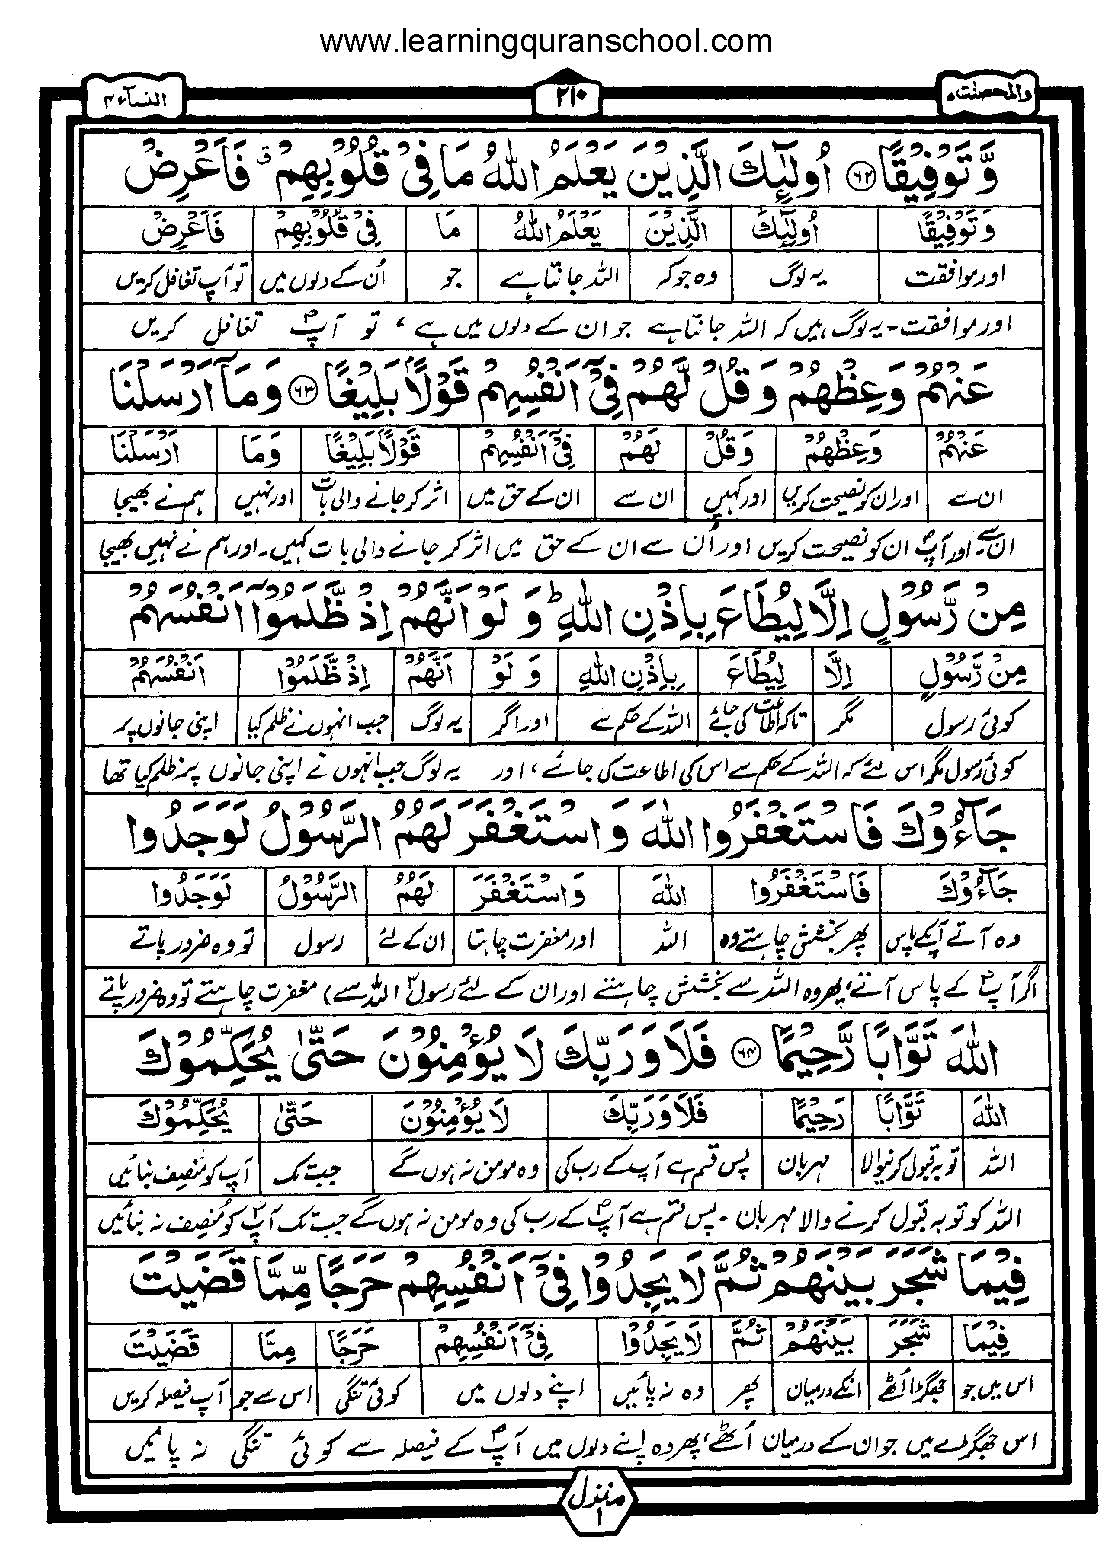 www.learningquranschool.com
والمحصنٰت ۵
۲۱۰
النسآء ۴
وَّتَوْفِيْقًا ﴿۶۲﴾ اُولٰٓئِكَ الَّذِيْنَ يَعْلَمُ اللّٰهُ مَا فِيْ قُلُوْبِهِمْ ۗ فَاَعْرِضْ
وَتَوْفِيْقًا اُولٰٓئِكَ الَّذِيْنَ يَعْلَمُ اللّٰهُ مَا فِيْ قُلُوْبِهِمْ فَاَعْرِضْ
اور موافقت یہ لوگ وہ جو کہ اللہ جانتا ہے جو اُن کے دلوں میں تو آپ تغافل کریں
اور موافقت۔ یہ لوگ ہیں کہ اللہ جانتا ہے جو ان کے دلوں میں ہے، تو آپؐ تغافل کریں
عَنْهُمْ وَعِظْهُمْ وَقُلْ لَّهُمْ فِيْٓ اَنْفُسِهِمْ قَوْلًاۢ بَلِيْغًا ﴿۶۳﴾ وَمَآ اَرْسَلْنَا
عَنْهُمْ وَعِظْهُمْ وَقُلْ لَهُمْ فِيْٓ اَنْفُسِهِمْ قَوْلًاۢ بَلِيْغًا وَمَا اَرْسَلْنَا
ان سے اور ان کو نصیحت کریں اور کہیں ان سے ان کے حق میں اثر کر جانے والی بات اور نہیں ہم نے بھیجا
ان سے۔ اور آپؐ ان کو نصیحت کریں اور اُن سے ان کے حق میں اثر کر جانے والی بات کہیں۔ اور ہم نے نہیں بھیجا
مِنْ رَّسُوْلٍ اِلَّا لِيُطَاعَ بِاِذْنِ اللّٰهِ ؕ وَلَوْ اَنَّهُمْ اِذْ ظَّلَمُوْٓا اَنْفُسَهُمْ
مِنْ رَّسُوْلٍ اِلَّا لِيُطَاعَ بِاِذْنِ اللّٰهِ وَ لَوْ اَنَّهُمْ اِذْ ظَّلَمُوْا اَنْفُسَهُمْ
کوئی رسول مگر تاکہ اطاعت کی جائے اللہ کے حکم سے اور اگر یہ لوگ جب انہوں نے ظلم کیا اپنی جانوں پر
کوئی رسول مگر اس لئے کہ اللہ کے حکم سے اس کی اطاعت کی جائے، اور یہ لوگ جب انہوں نے اپنی جانوں پر ظلم کیا تھا
جَآءُوْكَ فَاسْتَغْفَرُوا اللّٰهَ وَاسْتَغْفَرَ لَهُمُ الرَّسُوْلُ لَوَجَدُوا
جَآءُوْكَ فَاسْتَغْفَرُوا اللّٰهَ وَاسْتَغْفَرَ لَهُمُ الرَّسُوْلُ لَوَجَدُوا
وہ آتے آپکے پاس پھر بخشش چاہتے وہ اللہ اور مغفرت چاہتا ان کے لئے رسول تو وہ ضرور پاتے
اگر آپؐ کے پاس آتے، پھر وہ اللہ سے بخشش چاہتے اور ان کے لئے رسولؐ (اللہ سے) مغفرت چاہتے تو وہ ضرور پاتے
اللّٰهَ تَوَّابًا رَّحِيْمًا ﴿۶۴﴾ فَلَا وَرَبِّكَ لَا يُؤْمِنُوْنَ حَتّٰى يُحَكِّمُوْكَ
اللّٰهَ تَوَّابًا رَحِيْمًا فَلَا وَرَبِّكَ لَا يُؤْمِنُوْنَ حَتّٰى يُحَكِّمُوْكَ
اللہ توبہ قبول کرنیوالا مہربان پس قسم ہے آپ کے رب کی وہ مومن نہ ہوں گے جب تک آپ کو منصف بنائیں
اللہ کو توبہ قبول کرنے والا مہربان۔ پس قسم ہے آپؐ کے رب کی وہ مومن نہ ہوں گے جب تک آپؐ کو مُنصِف نہ بنائیں
فِيْمَا شَجَرَ بَيْنَهُمْ ثُمَّ لَا يَجِدُوْا فِيْٓ اَنْفُسِهِمْ حَرَجًا مِّمَّا قَضَيْتَ
فِيْمَا شَجَرَ بَيْنَهُمْ ثُمَّ لَا يَجِدُوْا فِيْٓ اَنْفُسِهِمْ حَرَجًا مِمَّا قَضَيْتَ
اس میں جو جھگڑا اُٹھے انکے درمیان پھر وہ نہ پائیں اپنے دلوں میں کوئی تنگی اس سے جو آپ فیصلہ کریں
اس جھگڑے میں جو ان کے درمیان اُٹھے، پھر وہ اپنے دلوں میں آپؐ کے فیصلہ سے کوئی تنگی نہ پائیں
منزل
۱